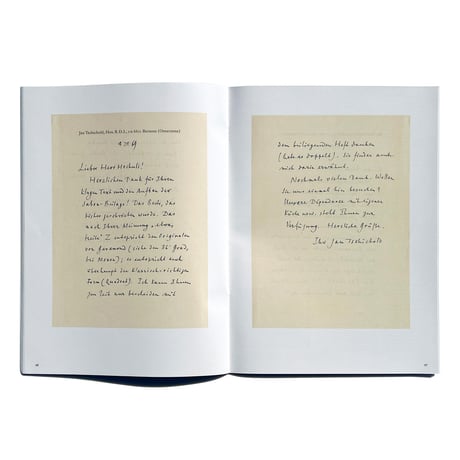 Jan Tschichold, Hon. R.D.I., Berzona (Onsernone)
69
Lieber Herr Hochuli!
Herzlichen Dank für Ihren
klugen Text und den Aufbau der
Sabon-Beilage! Das Beste, das
bisher geschrieben wurde. Das
nach Ihrer Meinung „etwas
breite" Z entspricht den Originalen
von Garamond (siehe den Grad,
bei ); es entspricht auch
überhaupt der klassisch-richtigen
Form (Quadrat). Ich kann Ihnen
zur Zeit nur bescheiden mit
dem beiliegenden Heft danken
(habe es doppelt). Sie finden auch
mich darin erwähnt.
Nochmals vielen Dank. Wollen
Sie uns einmal hier besuchen?
Unsere Dépendance mit eigener
Küche usw. steht Ihnen zur
Verfügung. Herzliche Grüße.
Ihr Jan Tschichold